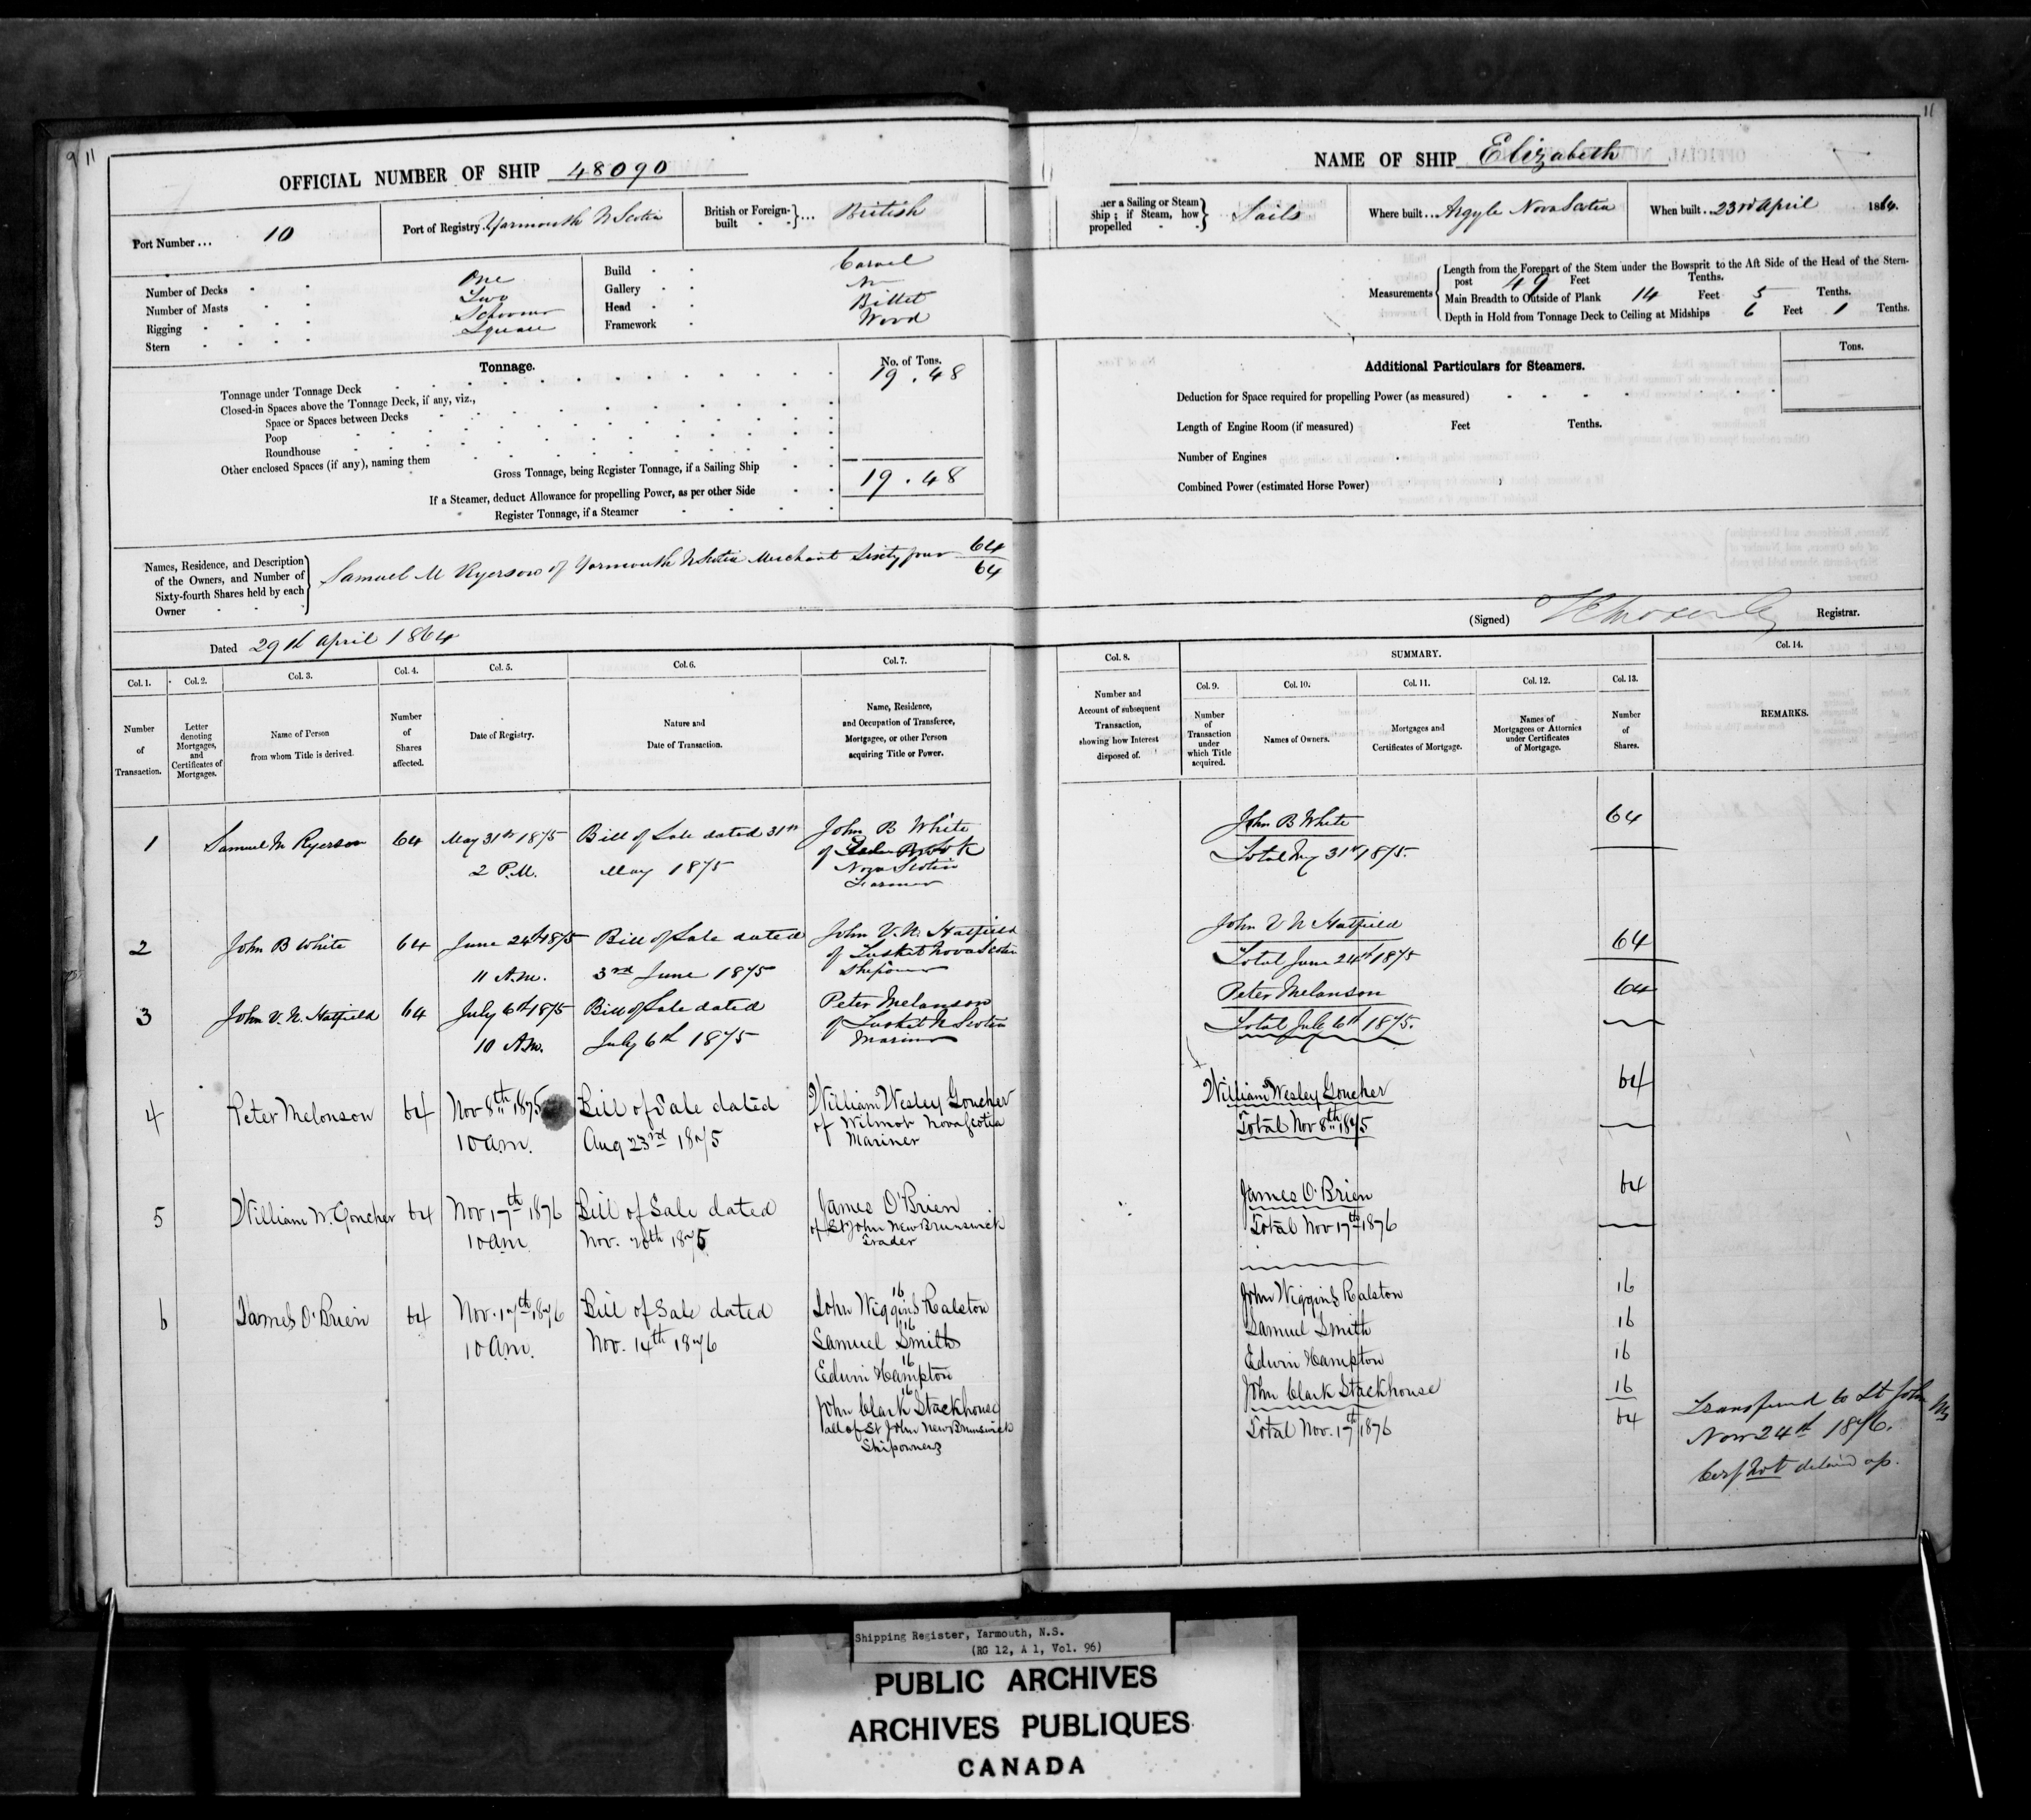 9 11
OFFICIAL NUMBER OF SHIP 48090
Port Number... 10
Port of Registry Yarmouth N Scotia
British or Foreign-
built } ... British
Number of Decks One
Number of Masts Two
Rigging Schooner
Stern Square
Build Carvel
Gallery No
Head Billet
Framework Wood
Tonnage.
No. of Tons.
Tonnage under Tonnage Deck 19.48
Closed-in Spaces above the Tonnage Deck, if any, viz.,
Space or Spaces between Decks
Poop
Roundhouse
Other enclosed Spaces (if any), naming them
Gross Tonnage, being Register Tonnage, if a Sailing Ship 19.48
If a Steamer, deduct Allowance for propelling Power, as per other Side
Register Tonnage, if a Steamer
Names, Residence, and Description
of the Owners, and Number of
Sixty-fourth Shares held by each
Owner
Samuel M Ryerson of Yarmouth N Scotia Merchant Sixty four 64/64
Dated 29th April 1864
Col. 1. Col. 2. Col. 3. Col. 4. Col. 5. Col. 6. Col. 7.
Number
of
Transaction.
Letter
denoting
Mortgages,
and
Certificates of
Mortgages.
Name of Person
from whom Title is derived.
Number
of
Shares
affected.
Date of Registry.
Nature and
Date of Transaction.
Name, Residence,
and Occupation of Transferee,
Mortgagee, or other Person
acquiring Title or Power.
1 Samuel M Ryerson 64 May 31st 1875 Bill of Sale dated 31st John B White
2 P.M. May 1875 of Brook
Nova Scotia
Farmer
2 John B White 64 June 24th 1875 Bill of Sale dated John V. N. Hatfield
11 A.M. 3rd June 1875 of Tusket Nova Scotia
Shipowner
3 John V. N. Hatfield 64 July 6th 1875 Bill of Sale dated Peter Melanson
10 A.M. July 6th 1875 of Tusket N Scotia
Mariner
4 Peter Melonson 64 Nov 8th 1875 Bill of Sale dated William Wesley Goucher
10 a.m. Aug 23rd 1875 of Wilmot Nova Scotia
Mariner
5 William W. Goucher 64 Nov 17th 1876 Bill of Sale dated James O'Brien
10 am Nov. 20th 1875 of St John New Brunswick
Trader
6 James O'Brien 64 Nov. 17th 1876 Bill of Sale dated John Wiggins Ralston 16
10 am. Nov. 14th 1876 Samuel Smith 16
Edwin Hampton 16
John Clark Stackhouse 16
all of St John New Brunswick
Shipowners
11
NAME OF SHIP Elizabeth
her a Sailing or Steam
Ship; if Steam, how
propelled } Sails
Where built... Argyle Nova Scotia
When built.. 23rd April 1864.
Measurements
Length from the Forepart of the Stem under the Bowsprit to the Aft Side of the Head of the Stern-
post 49 Feet Tenths.
Main Breadth to Outside of Plank 14 Feet 5 Tenths.
Depth in Hold from Tonnage Deck to Ceiling at Midships 6 Feet 1 Tenths.
Additional Particulars for Steamers.
Tons.
Deduction for Space required for propelling Power (as measured)
Length of Engine Room (if measured) Feet Tenths.
Number of Engines
Combined Power (estimated Horse Power)
(Signed) Registrar.
Col. 8. SUMMARY. Col. 14.
Col. 9. Col. 10. Col. 11. Col. 12. Col. 13.
Number and
Account of subsequent
Transaction,
showing how Interest
disposed of.
Number
of
Transaction
under
which Title
acquired.
Names of Owners.
Mortgages and
Certificates of Mortgage.
Names of
Mortgagees or Attornies
under Certificates
of Mortgage.
Number
of
Shares.
REMARKS.
John B White 64
Total May 31st 1875.
John V N Hatfield 64
Total June 24th 1875
Peter Melanson 64
Total July 6th 1875.
William Wesley Goucher 64
Total Nov 8th 1875
James O'Brien 64
Total Nov 17th 1876
John Wiggins Ralston 16
Samuel Smith 16
Edwin Hampton 16
John Clark Stackhouse 16
Total Nov. 17th 1876 64
Transferred to St John
Nov 24th 1876.
Cert not delivd up.
Shipping Register, Yarmouth, N.S.
(RG 12, A 1, Vol. 96)
PUBLIC ARCHIVES
ARCHIVES PUBLIQUES
CANADA